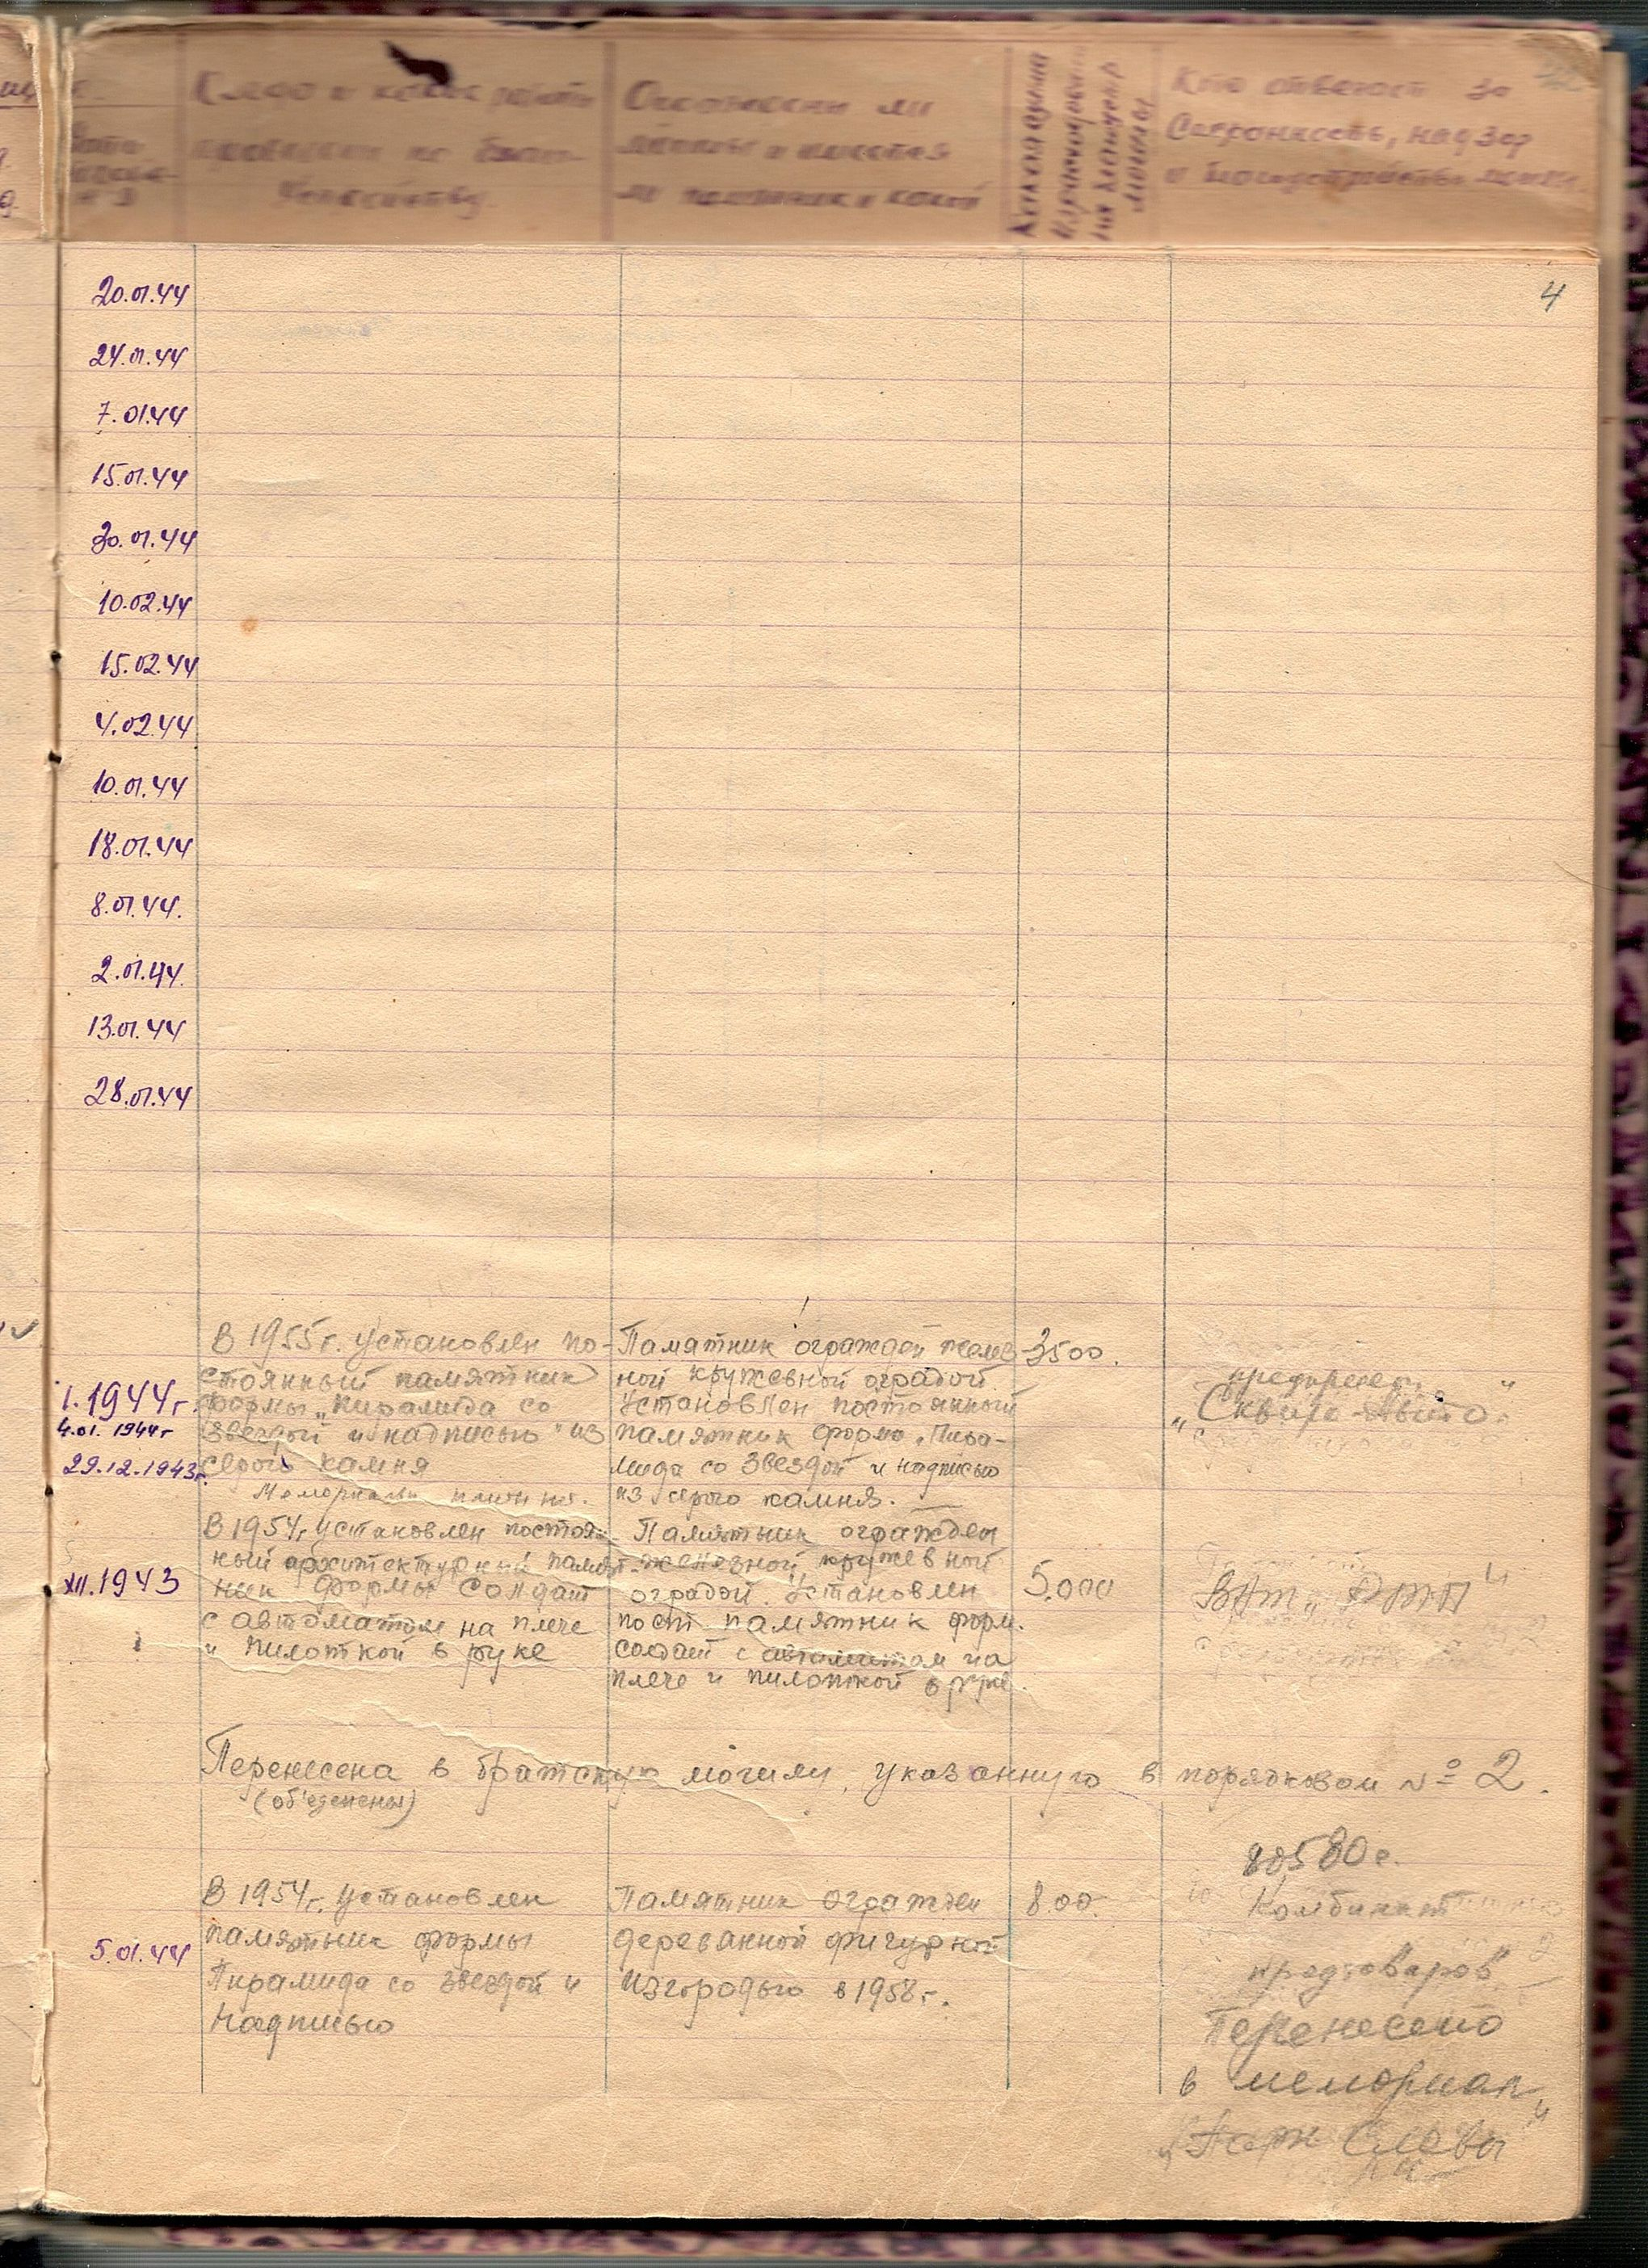 Кто отвечает за
Сохранность, надзор
и благоустройство
Ограждены ли
могилы и имеется
ли памятник и какой
4
20.01.44
24.01.44
7.01.44
15.01.44
30.01.44
10.02.44
15.02.44
4.02.44
10.01.44
18.01.44
8.01.44.
2.01.44.
13.01.44
28.01.44
I.1944г.
4.01.1944г
29.12.1943г.
В 1955г. установлен по-
стоянный памятник
формы „пирамида со
звездой и надписью" из
серого камня
Памятник огражден желез
ной кружевной оградой.
Установлен постоянный
памятник форма „Пира-
мида со звездой и надписью
из серого камня.
3500.
„Сквира-Авто"
XII.1943
В 1954г. установлен постоян-
ный архитектурный памят-
ник формы Солдат
с автоматом на плече
и пилоткой в руке
Памятник огражден
железной кружевной
оградой. Установлен
пост памятник форм.
солдат с автоматом на
плече и пилоткой в руке.
5.000
Перенесена в братскую могилу, указанную в порядковом № 2.
(об'єденены)
5.01.44
В 1954г. установлен
памятник формы
Пирамида со звездой и
надписью
Памятник огражден
деревянной фигурной
изгородью в 1958г.
800.
Комбинат
продтоваров"
Перенесено
в мемориал
„Парк Славы"